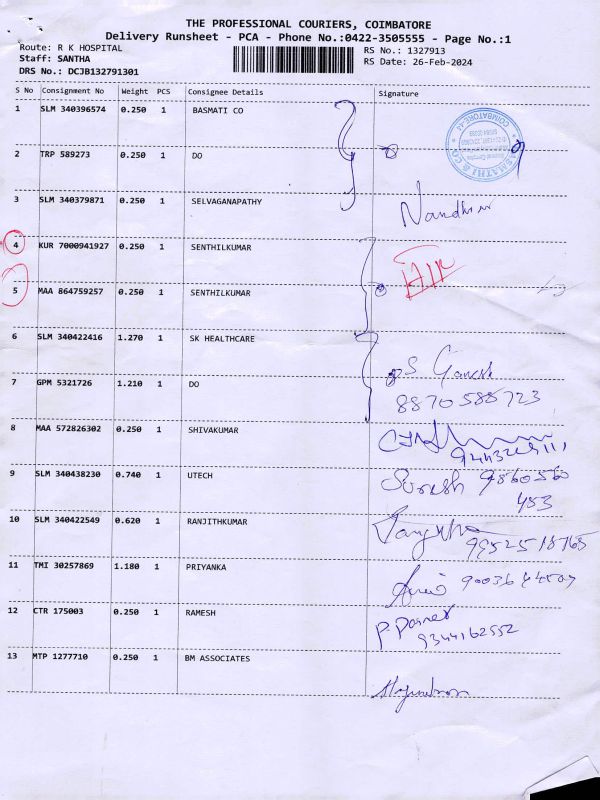 THE PROFESSIONAL COURIERS, COIMBATORE
Delivery Runsheet - PCA - Phone No.:0422-3505555 - Page No.:1
Route: R K HOSPITAL RS No.: 1327913
Staff: SANTHA RS Date: 26-Feb-2024
DRS No.: DCJB132791301
S No Consignment No Weight PCS Consignee Details Signature
1 SLM 340396574 0.250 1 BASMATI CO
2 TRP 589273 0.250 1 DO
3 SLM 340379871 0.250 1 SELVAGANAPATHY
4 KUR 7000941927 0.250 1 SENTHILKUMAR
5 MAA 864759257 0.250 1 SENTHILKUMAR
6 SLM 340422416 1.270 1 SK HEALTHCARE
S Ganesh
7 GPM 5321726 1.210 1 DO
8870588723
8 MAA 572826302 0.250 1 SHIVAKUMAR
9 SLM 340438230 0.740 1 UTECH
Suresh 9860560
453
10 SLM 340422549 0.620 1 RANJITHKUMAR
9952518765
11 TMI 30257869 1.180 1 PRIYANKA
12 CTR 175003 0.250 1 RAMESH
9344162552
13 MTP 1277710 0.250 1 BM ASSOCIATES